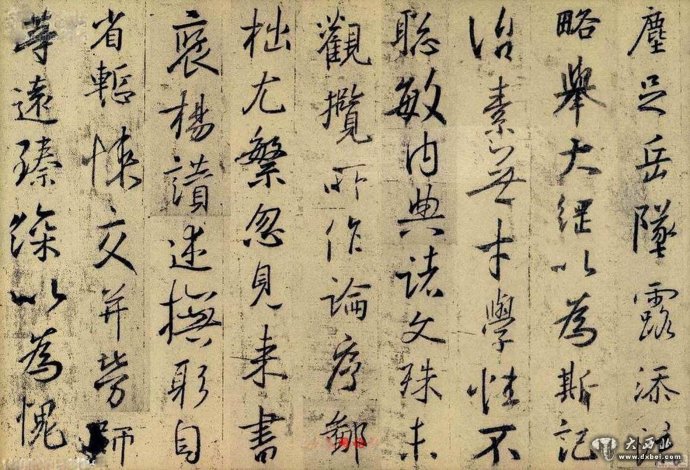 塵足岳墜露添流
略舉大綱以為斯記
治素無才學性不
聰敏內典諸文殊未
觀攬所作論序鄙
拙尤繁忽見來書
褒揚讃述撫躬自
省慙悚交并勞師
等遠臻深以為愧
大西北
www.dxbei.com